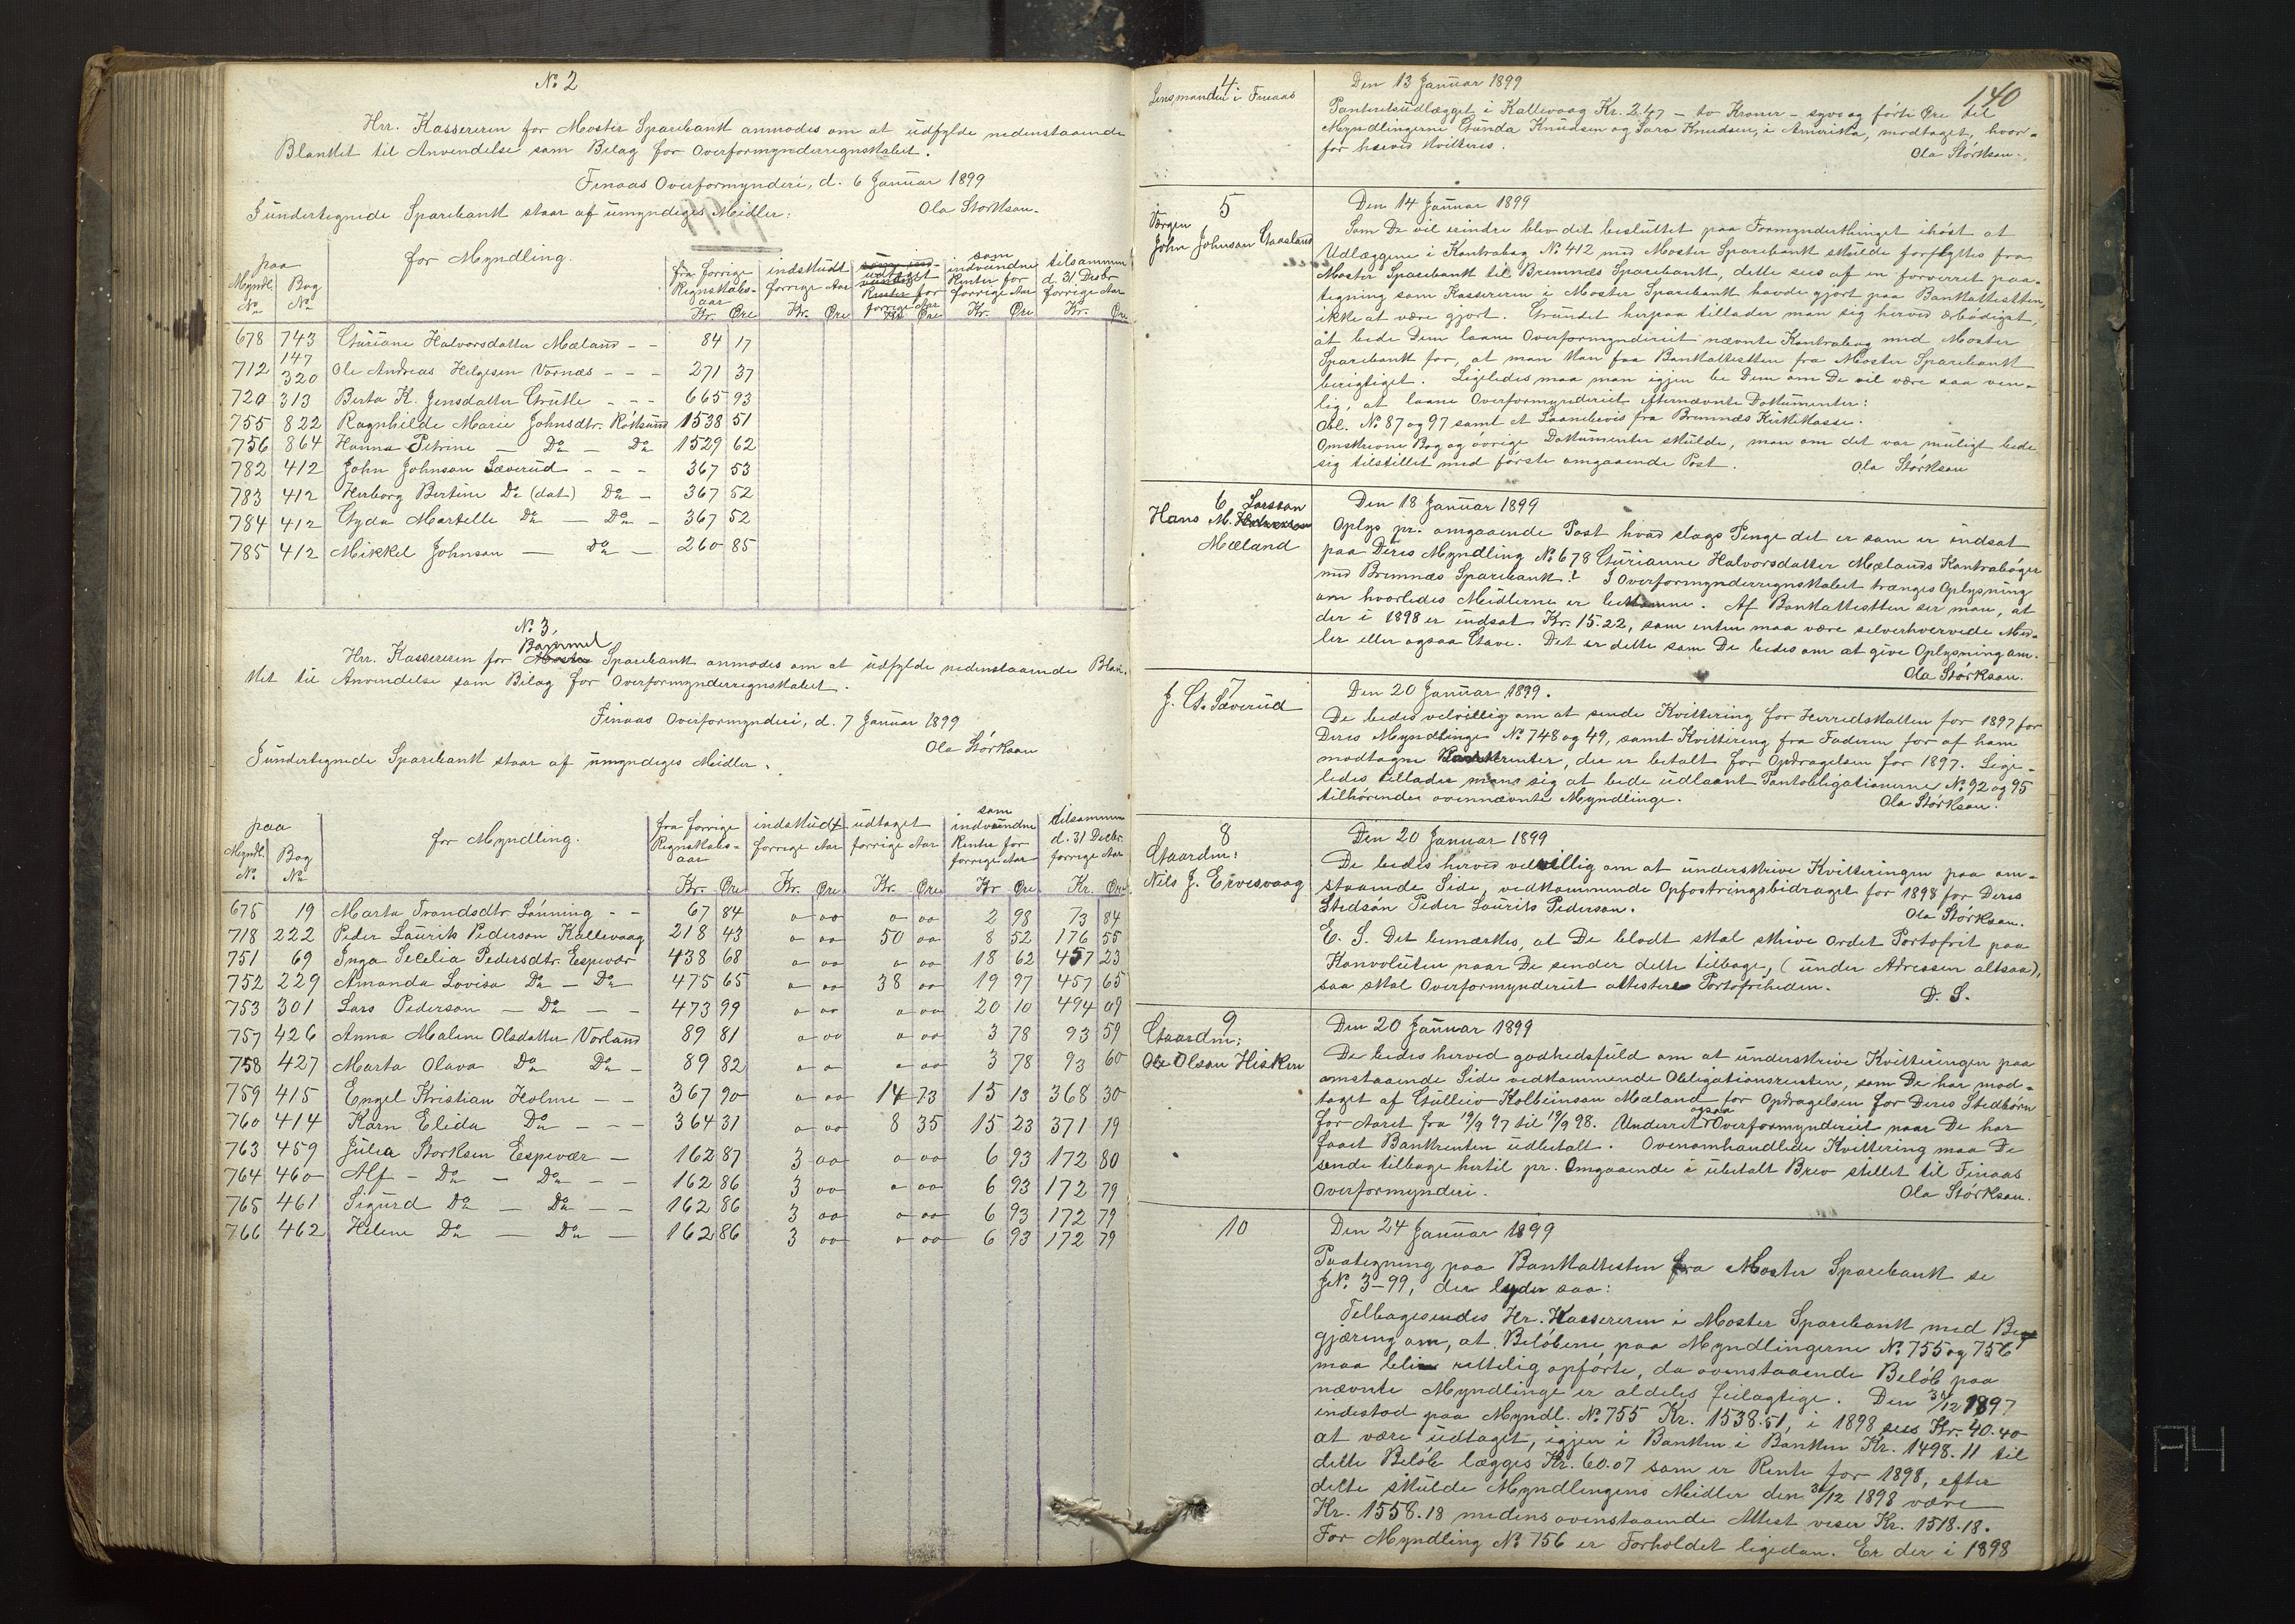 No 2
Hrr. Kassereren for Moster Sparebank anmodes om at udfylde nedenstaaende
Blanket til Anvendelse som Bilag for Overformynderregnskabet.
Finaas Overformynderi, d. 6 Januar 1899
Ola Störkson.
I undertegnede Sparebank staar af umyndiges Midler:
paa
Myndl. No
Bog No
for Myndling.
fra forrige Regnskabs-aar
indskudt forrige Aar
udtaget forrige Aar
som indvundne Renter for forrige Aar
tilsammen d. 31 Decbr forrige Aar
Kr. Øre Kr. Øre Kr. Øre Kr. Øre Kr. Øre
678 743 Guriane Halvorsdatter Mæland - - 84 17
712 147 320 Ole Andreas Helgesen Vornæs - - - 271 37
720 313 Berta K. Jensdatter Grutle - - - 665 93
755 822 Ragnhilde Marie Johnsdtr. Röksund 1538 51
756 864 Hanna Petrine - Do - Do 1529 62
782 412 John Johnson Sæverud - - - 367 53
783 412 Herborg Bertine Do (dat) Do - 367 52
784 412 Gyda Martelle Do - Do - 367 52
785 412 Mikkel Johnson - Do - 260 85
No 3,
Hrr. Kassereren for Bømmel Sparebank anmodes om at udfylde nedenstaaende Blan-
ket til Anvendelse som Bilag for Overformynderregnskabet.
Finaas Overformynderi, d. 7 Januar 1899
Ola Störkson
I undertegnede Sparebank staar af umyndiges Midler.
paa
Myndl. No
Bog No
for Myndling.
fra forrige Regnskabs-aar
indskudt forrige Aar
udtaget forrige Aar
som indvundne Renter for forrige Aar
tilsammen d. 31 Decbr. forrige Aar
Kr. Øre Kr. Øre Kr. Øre Kr Øre Kr. Øre
675 19 Marta Trondsdtr. Lönning - - 67 84 o oo o oo 2 98 73 84
718 222 Peder Laurits Pederson Kallevaag 218 43 o oo 50 oo 8 52 176 55
751 69 Inga Secelia Pedersdtr. Espevær 438 68 o oo o oo 18 62 457 23
752 229 Amanda Lovisa Do - Do 475 65 o oo 38 oo 19 97 457 65
753 301 Lars Pederson - Do - - 473 99 o oo o oo 20 10 494 09
757 426 Anna Malene Olsdatter Vorland 89 81 o oo o oo 3 78 93 59
758 427 Marta Olava Do Do - 89 82 o o o oo 3 78 93 60
759 415 Engel Kristian Holme - - 367 90 o oo 14 73 15 13 368 30
760 414 Karn Elida Do - - - 364 31 o oo 8 35 15 23 371 19
763 459 Julia Storksen Espevær - 162 87 3 oo o oo 6 93 172 80
764 460 Alf - Do - Do - - 162 86 3 oo o oo 6 93 172 79
765 461 Sigurd Do - Do - - 162 86 3 oo o oo 6 93 172 79
766 462 Helene Do - Do - 162 86 3 oo o oo 6 93 172 79
140
4
Lensmanden i Finaas
Den 13 Januar 1899
Panteretsudlægget i Kallevaag Kr. 2.47 - to Kroner - syvogförti Öre til
Myndlingerne Gunda Knudsen og Sara Knudsen, i Amerika, modtaget, hvor-
for herved kvitteres.
Ola Störkson.
5
Værgen
John Johnson Gaasland
Den 14 Januar 1899
Som De vil erindre blev det besluttet paa Formynderthinget ihöst at
Udlæggene i Kontrabog No 412 med Moster Sparebank skulde forflyttes fra
Moster Sparebank til Bremnæs Sparebank, dette sees af en forverret paa-
tegning som Kassereren i Moster Sparebank havde gjort paa Bankattesten,
ikke at være gjort. Grundet herpaa tillader man sig herved ærbödigst,
at bede Dem laane Overformynderiet nævnte Kontrabog med Moster
Sparebank for, at man kan faa Bankattesten fra Moster Sparebank
berigtiget. Ligeledes maa man igjen be Dem om De vil være saa ven-
lig, at laane Overformynderiet efternævnte Dokumenter:
Obl. No 87 og 97 samt et Laanebevis fra Bremnæs Kirkekasse.
Omskrevne Bog og övrige Dokumenter skulde, man om det var muligt bede
sig tilstillet med förste omgaaende Post.
Ola Störkson
6
Hans M. Larsson
Mæland
Den 18 Januar 1899
Oplys pr. omgaaende Post hvad slags Penge det er som er indsat
paa Deres Myndling No 678 Gurianne Halvorsdatter Mælands Kontraböger
med Bremnæs Sparebank? I Overformynderregnskabet trænges Oplysning
om hvorledes Midlerne er bekomne. Af Bankattesten ser man, at
der i 1898 er indsat Kr. 15.22, som enten maa være selverhvervede Mid-
ler eller ogsaa Gave. Det er dette som De bedes om at give Oplysning om.
Ola Störkson.
7
J. G. Sæverud
Den 20 Januar 1899.
De bedes velvillig om at sende Kvittering for Herredskatten for 1897 for
Deres Myndlinge No 748 og 49, samt Kvittering fra Faderen for af ham
modtagne Bankrenter, der er betalt for Opdragelsen for 1897. Lige-
ledes tillader man sig at bede udlaant Pantobligationerne No 92 og 95
tilhörende ovennævnte Myndlinge.
Ola Störkson.
8
Gaardm:
Nils J. Ervesvaag
Den 20 Januar 1899
De bedes herved velvillig om at underskrive Kvitteringen paa om-
staaende Side, vedkommende Opfostringsbidraget for 1898 for Deres
Stedsön Peder Laurits Pederson.
Ola Störkson.
E. S. Det bemærkes, at De blodt skal skrive Ordet Portofrit paa
Konvoluten naar De sender dette tilbage, (under Adressen altsaa),
saa skal Overformynderiet attestere Portofriheden.
D. S.
9
Gaardm:
Ole Olson Hisken
Den 20 Januar 1899
De bedes herved godhedsfuld om at underskrive Kvitteringen paa
omstaaende Side vedkommende Obligationsrenten, som De har mod-
taget af Gulleiv Kolbeinson Mæland for Opdragelsen for Deres Stedbörn
for Aaret fra 19/9 97 til 19/9 98. Underret ogsaa Overformynderiet naar De har
faaet Bankrenten udbetalt. Ovenomhandlede Kvittering maa De
sende tilbage hertil pr. Omgaaende i ubetalt Brev stillet til Finaas
Overformynderi.
Ola Störkson.
10
Den 24 Januar 1899
Paategning paa Bankattesten fra Moster Sparebank se
JNo. 3-99, der lyder saa:
Tilbagesendes Hr. Kassereren i Moster Sparebank med Be-
gjæring om, at Belöbene paa Myndlingerne No 755 og 756
maa blive rettelig opförte, da ovenstaaende Belöb paa
nævnte Myndlinge er aldeles feilagtige. Den 31/12 1897
indestod paa Myndl. No 755 Kr. 1538.51, i 1898 sees Kr. 40.40
at være udtaget, igjen i Banken i Banken Kr. 1498.11 til
dette Belöb lægges Kr. 60.07 som er Rente for 1898, efter
dette skulde Myndlingens Midler den 31/12 1898 være
Kr. 1558.18 medens ovenstaaende Attest viser Kr. 1518.18.
For Myndling No 756 er Forholdet ligedan. Er der i 1898